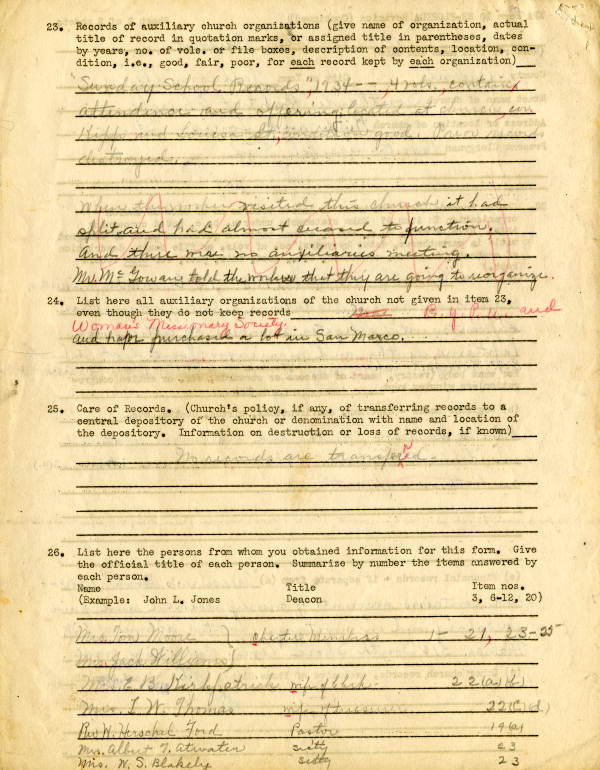 23. Records of auxiliary church organizations (give name of organization, actual
title of record in quotation marks, or assigned title in parentheses, dates
by years, no. of vols. or file boxes, description of contents, location, con-
dition, i.e., good, fair, poor, for each record kept by each organization)
"Sunday School Records," 1934 --, 4 vols., contains
attendence and offering located at church, cor
St, good. Prior records
destroyed.
When the worker visited this church it had
split and had almost ceased to function.
And there was no auxiliaries meeting.
Mr. McGowan told the worker that they are going to reorganize.
24. List here all auxiliary organizations of the church not given in item 23,
even though they do not keep records B. Y. P. U. and
Woman's Missionary Society.
and have purchased a lot in San Marco.
25. Care of Records. (Church's policy, if any, of transferring records to a
central depository of the church or denomination with name and location of
the depository. Information on destruction or loss of records, if known)
No records are transfered
26. List here the persons from whom you obtained information for this form. Give
the official title of each person. Summarize by number the items answered by
each person.
Name Title Item nos.
(Example: John L. Jones Deacon 3, 6-12, 20)
Mrs. Tom Moore Members 1 - 21, 23-25
Mrs. Jack Williams
Mrs. E. B. Kirkpatrick wife of clerk
Mrs. L. W. Thomas wife of treasurer
Rev W. Herschel Ford Pastor
Mrs. Albert T. Atwater 23
Mrs. W. S. Blakely 23